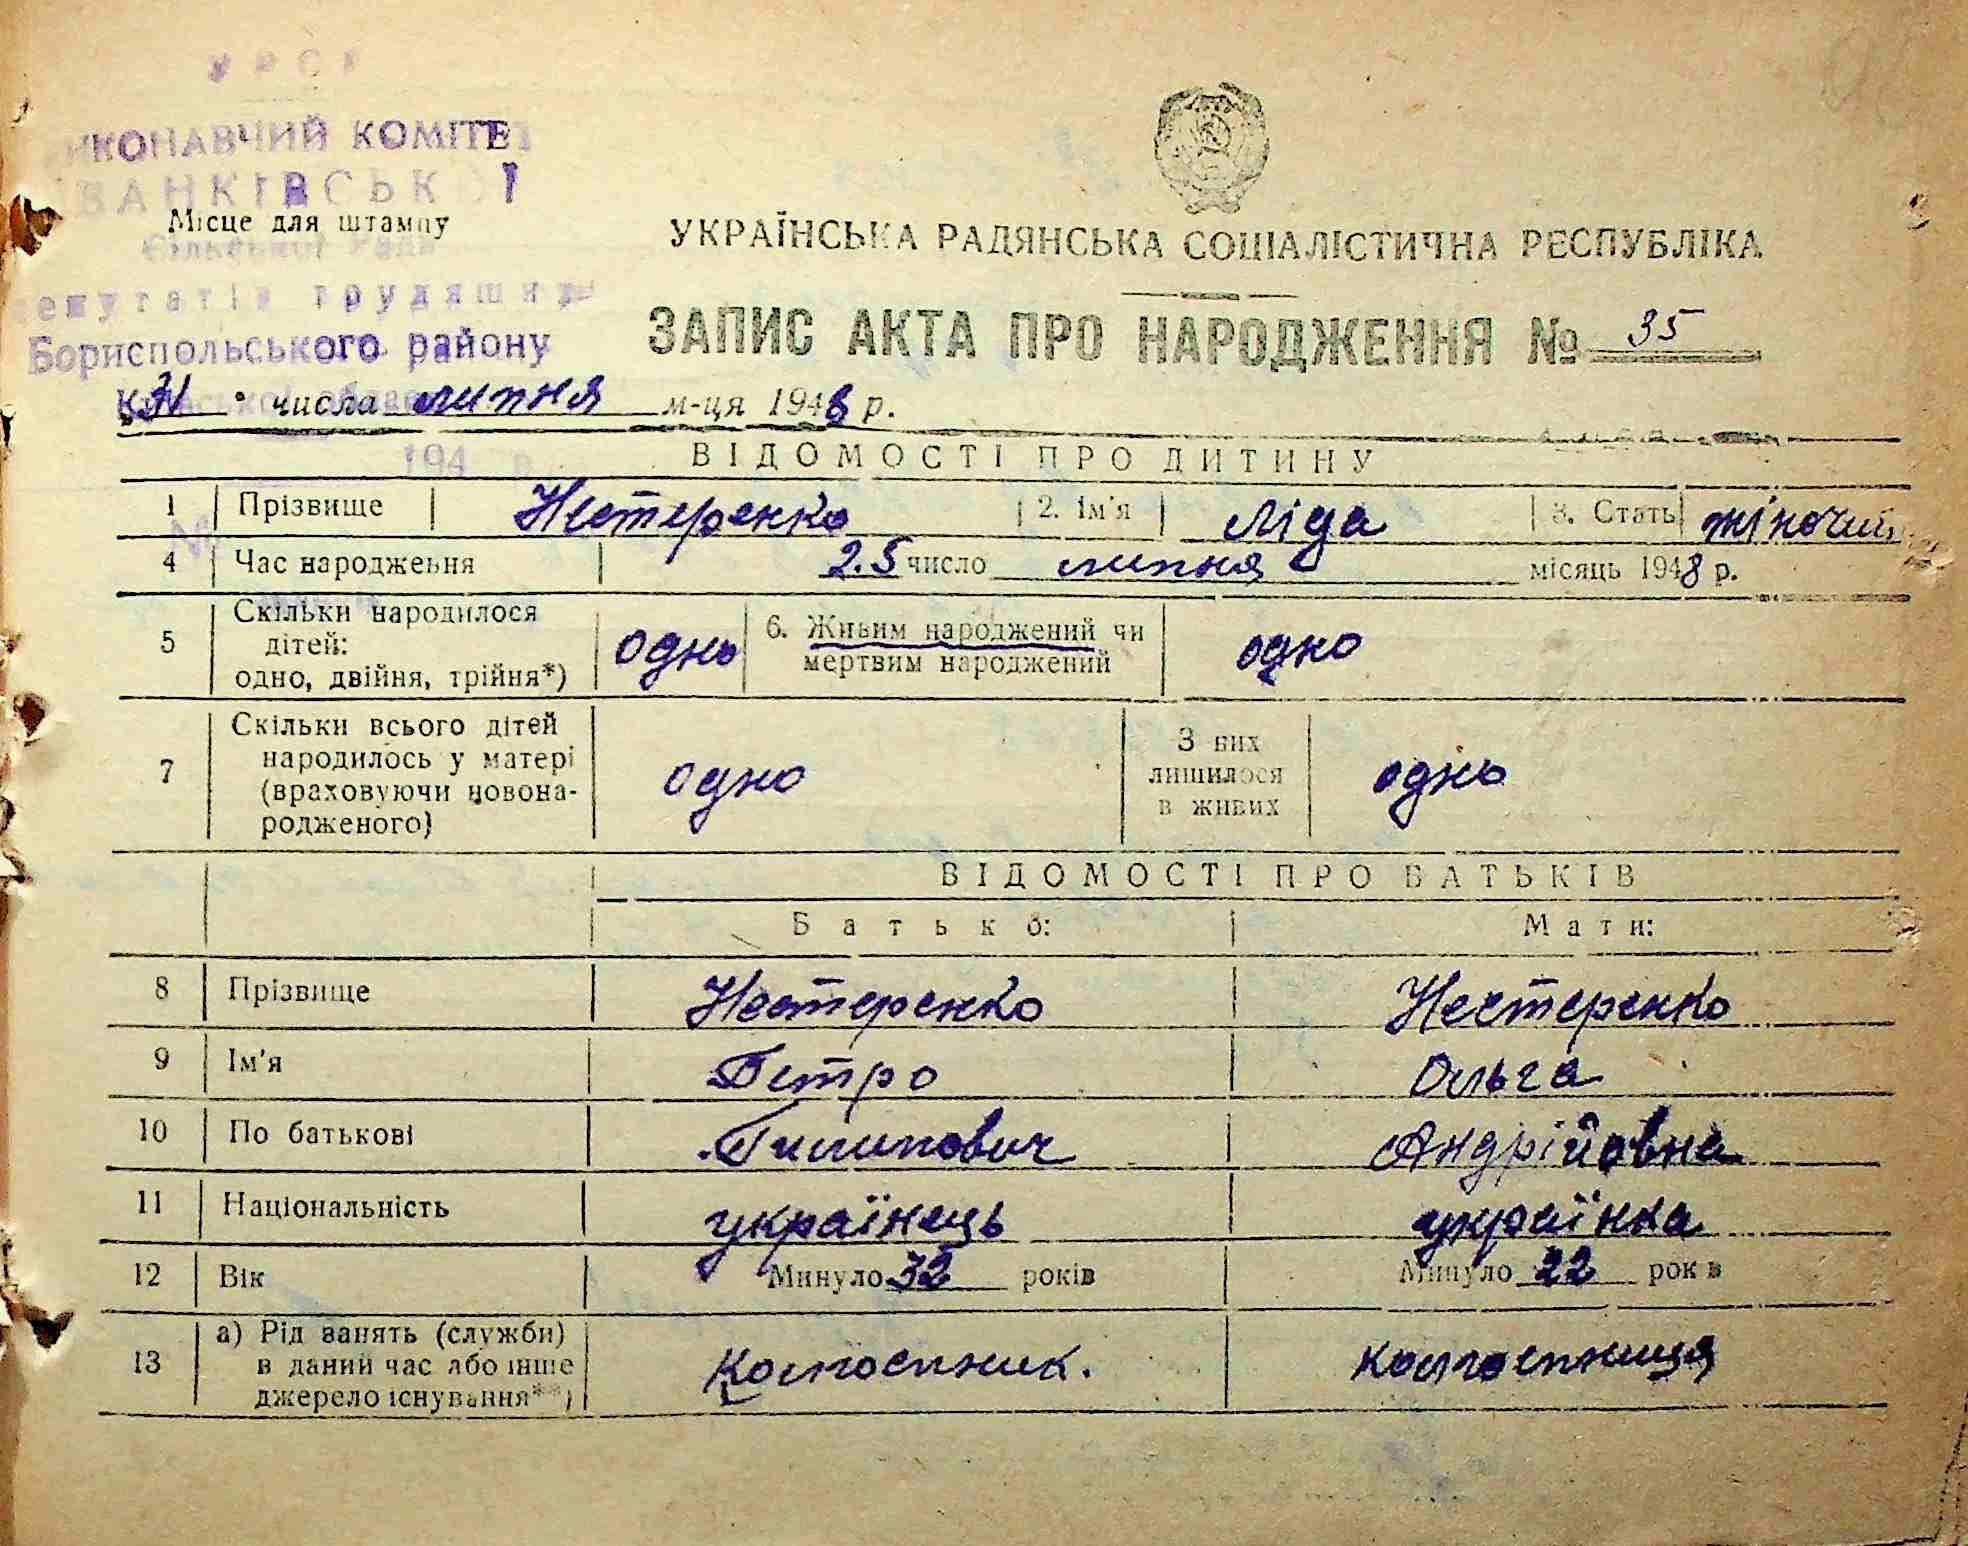 УРСР
ИКОНАВЧИЙ КОМІТЕТ
ВАНКІВСЬКОЇ
Місце для штампу
Сільської Ради
депутатів трудящих
Бориспольського району
194 р.
УКРАЇНСЬКА РАДЯНСЬКА СОЦІАЛІСТИЧНА РЕСПУБЛІКА
ЗАПИС АКТА ПРО НАРОДЖЕННЯ № 35
31 числа липня м-ця 1948 р.
ВІДОМОСТІ ПРО ДИТИНУ
1 Прізвище Нестеренко 2. Ім'я Ліда 3. Стать жіночий
4 Час народження 25 число липня місяць 1948 р.
5 Скільки народилося дітей: одно, двійня, трійня*) одно 6. Живим народжений чи мертвим народжений одно
7 Скільки всього дітей народилось у матері (враховуючи новонародженого) одно З них лишилося в живих одно
ВІДОМОСТІ ПРО БАТЬКІВ
Батько: Мати:
8 Прізвище Нестеренко Нестеренко
9 Ім'я Петро Ольга
10 По батькові Пилипович Андрійовна
11 Національність українець українка
12 Вік Минуло 32 років Минуло 22 років
13 а) Рід занять (служби) в даний час або інше джерело існування**) Колгоспник. колгоспниця